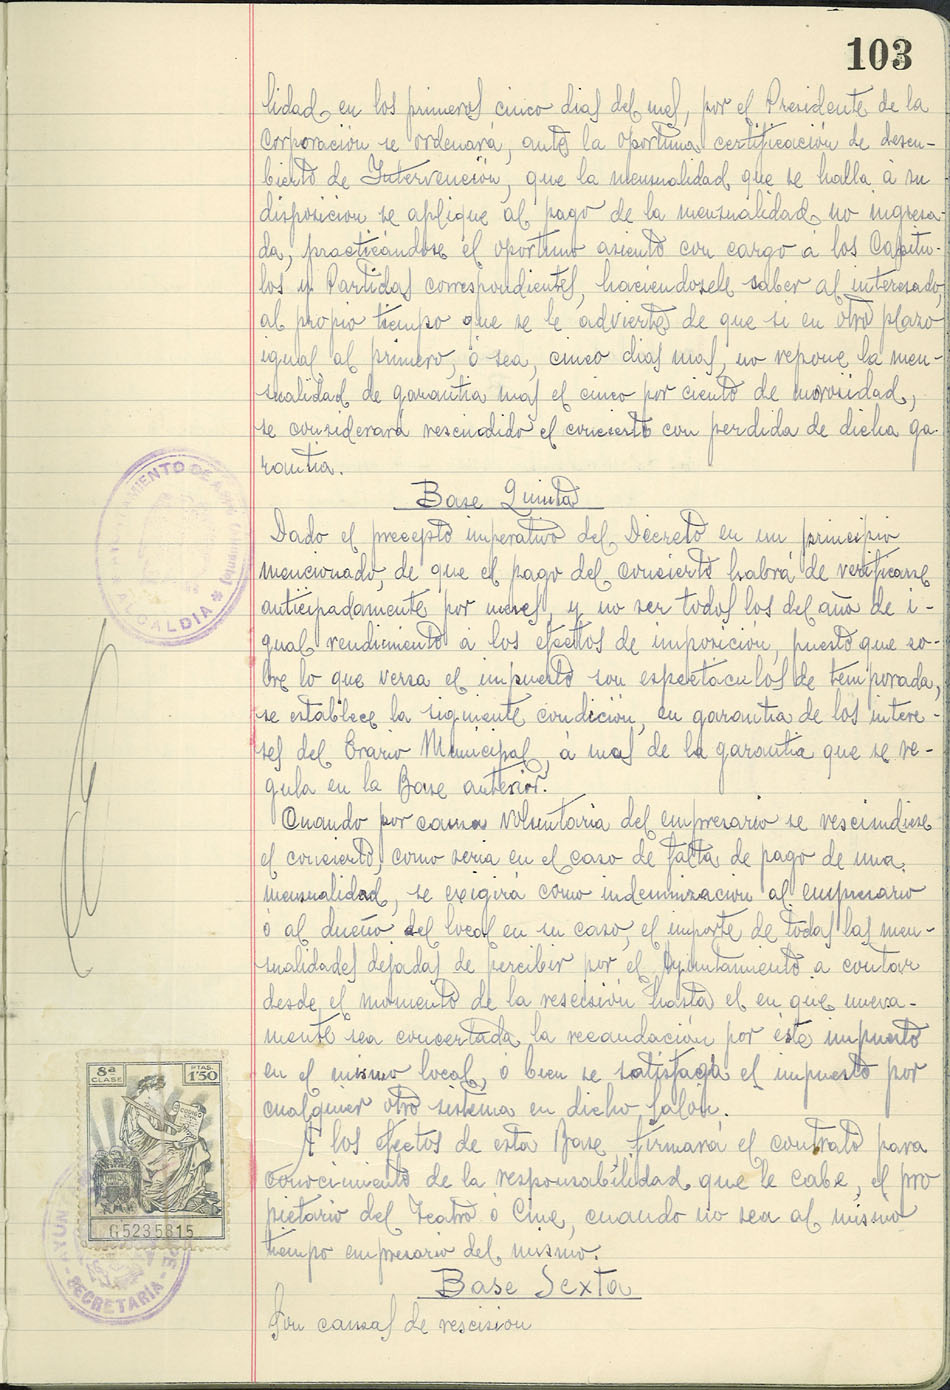 103
lidad, en los primeros cinco dias del mes, por el Presidente de la
Corporación se ordenará, ante la oportuna certificación de descu-
bierto de Intervención, que la mensualidad que se halla á su
disposicion se aplique al pago de la mensualidad no ingresa-
da, practicándose el oportuno asiento con cargo á los Capitu-
los y Partidas correspondientes, haciendosele saber al interesado,
al propio tiempo que se le advierte de que si en otro plazo
igual al primero, ó sea, cinco dias mas, no repone la men-
sualidad de garantia mas el cinco por ciento de morosidad,
se considerará rescindido el concierto con perdida de dicha ga
rantia.
Base Quinta
Dado el precepto imperativo del Decreto en un principio
mencionado, de que el pago del concierto habrá de verificarse
anticipadamente por meses, y no ser todos los del año de i-
gual rendimiento á los efectos de imposición, puesto que so-
bre lo que versa el impuesto son espectaculos de temporada,
se establece la siguiente condición, en garantia de los intere-
ses del Erario Municipal, á mas de la garantia que se re-
gula en la Base anterior.
Cuando por causa voluntaria del empresario se rescindiese
el concierto, como seria en el caso de falta de pago de una
mensualidad, se exigirá como indemnizacion al empresario
ó al dueño del local en su caso, el importe de todas las men-
sualidades dejadas de percibir por el Ayuntamiento a contar
desde el momento de la rescisión hasta el en que nueva-
mente sea concertada la recaudación por éste impuesto
en el mismo local, ó bien se satisfaga el impuesto por
cualquier otro sistema en dicho salón.
A los efectos de esta Base, firmará el contrato para
conocimiento de la responsabilidad que le cabe, el pro
pietario del Teatro ó Cine, cuando no sea al mismo
tiempo empresario del mismo.
Base Sexta
Son causas de rescision
AYUNTAMIENTO DE
ALCALDIA
8ª
CLASE
PTAS.
1'50
G5235815
AYUN
SECRETARÍA